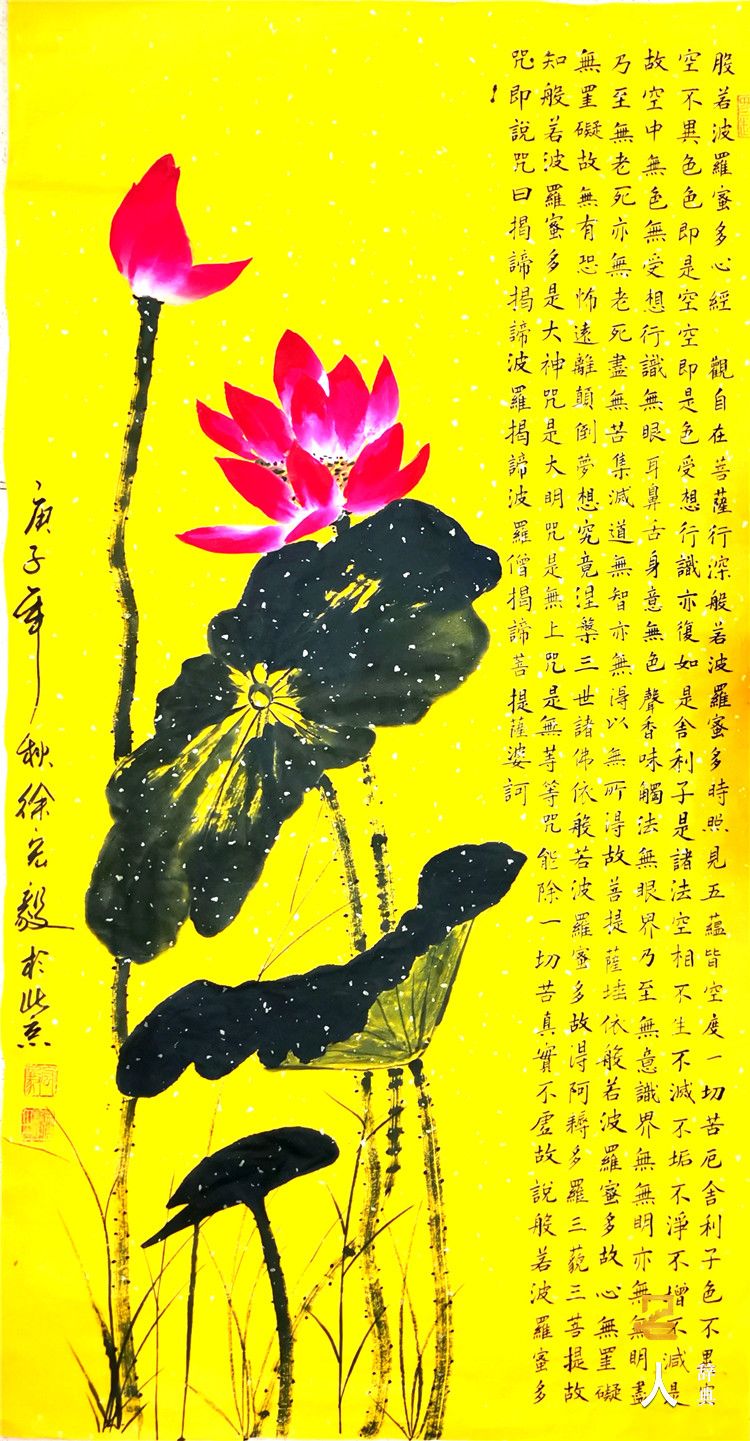 般若波羅蜜多心經 觀自在菩薩行深般若波羅蜜多時照見五蘊皆空度一切苦厄舍利子色不異
空不異色色即是空空即是色受想行識亦復如是舍利子是諸法空相不生不滅不垢不淨不增不減是
故空中無色無受想行識無眼耳鼻舌身意無色聲香味觸法無眼界乃至無意識界無無明亦無無明盡
乃至無老死亦無老死盡無苦集滅道無智亦無得以無所得故菩提薩埵依般若波羅蜜多故心無罣礙
無罣礙故無有恐怖遠離顛倒夢想究竟涅槃三世諸佛依般若波羅蜜多故得阿耨多羅三藐三菩提故
知般若波羅蜜多是大神咒是大明咒是無上咒是無等等咒能除一切苦真實不虛故說般若波羅蜜多
咒即說咒曰揭諦揭諦波羅揭諦波羅僧揭諦菩提薩婆訶
庚子年秋徐宏毅於北京
人 辞典